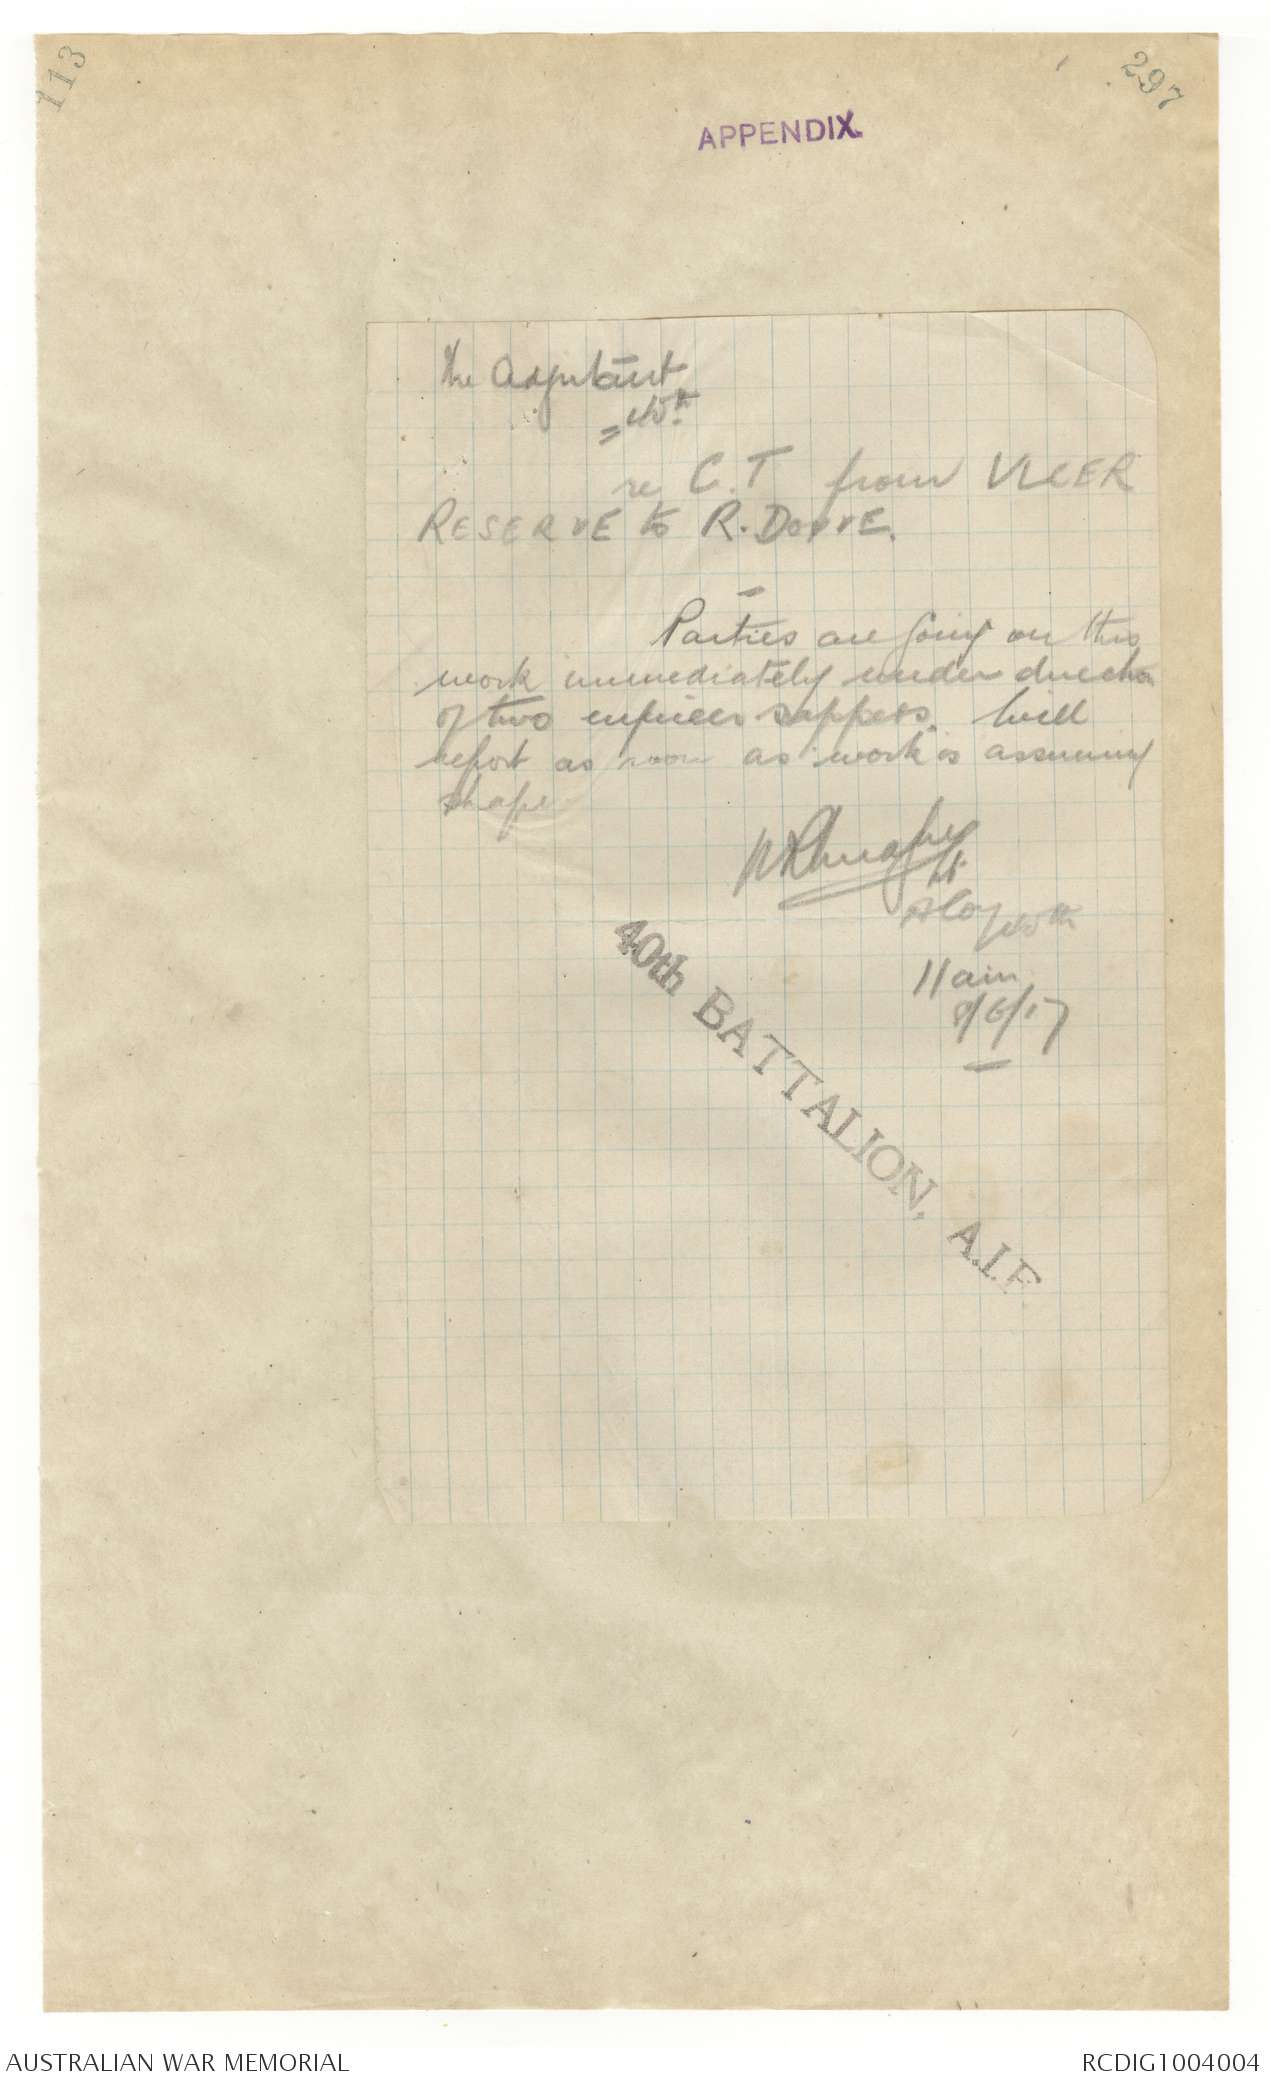 113
297
APPENDIX.
The Adjutant
= 40th
re C.T from ULCER
RESERVE to R. DOUVE.
Parties are going on this
work immediately under direction
of two engineer sappers. Will
report as soon as work is assuming
shape
Lt.
Coy 40th
40th BATTALION, A.I.F
11 am
8/6/17
AUSTRALIAN WAR MEMORIAL
RCDIG1004004